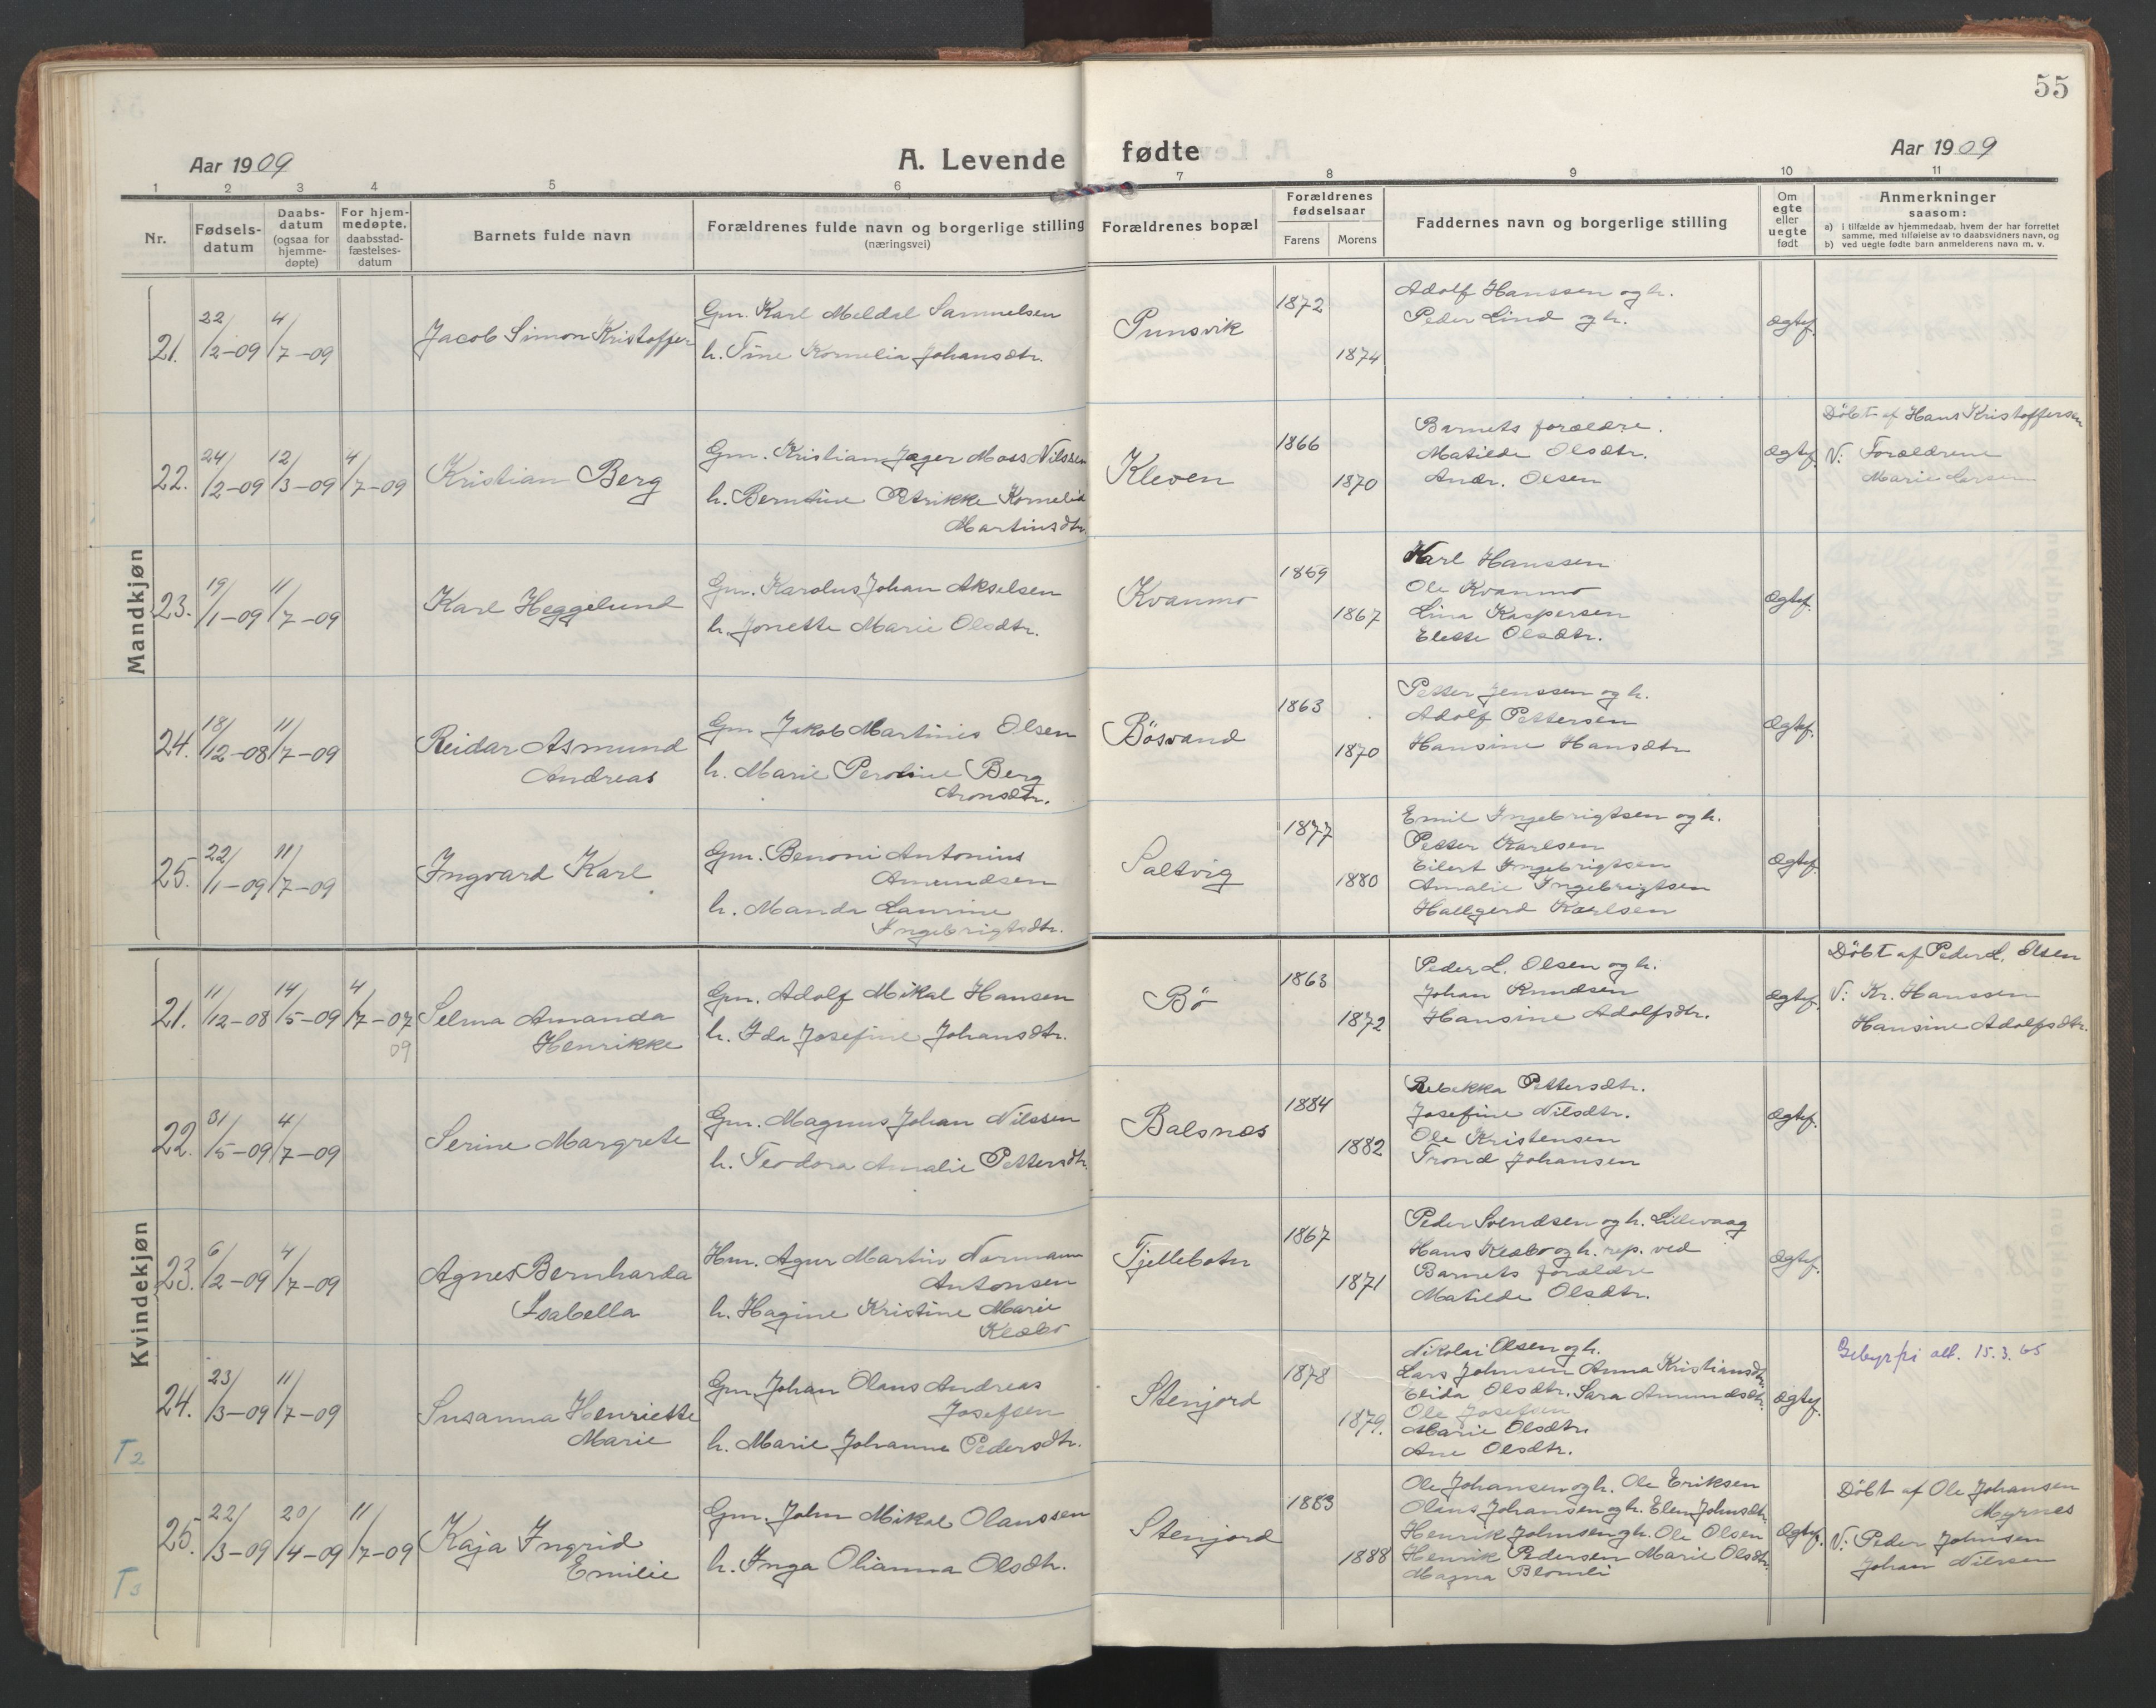 55
Aar 1909
A. Levende fødte
Aar 1909
1 2 3 4 5 6 7 8 9 10 11
Nr.
Fødsels-
datum
Daabs-
datum
(ogsaa for
hjemme-
døpte)
For hjem-
medøpte,
daabsstad-
fæstelses-
datum
Barnets fulde navn
Forældrenes fulde navn og borgerlige stilling
(næringsvei)
Forældrenes bopæl
Forældrenes
fødselsaar
Farens Morens
Faddernes navn og borgerlige stilling
Om
egte
eller
uegte
født
Anmerkninger
saasom:
a) i tilfælde av hjemmedaab, hvem der har forrettet
samme, med tilføielse av to daabsvidners navn, og
b) ved uegte fødte barn anmelderens navn m. v.
Mandkjøn
21. 22/2-09 4/7-09
Jacob Simon Kristoffer
Gm. Karl Meldal Samuelsen
h. Tine Kornelia Johansdtr.
Punsvik
1872
1874
Adolf Hanssen og h.
Peder Lind og h.
Ægtef.
22. 24/2-09 12/3-09 4/7-09
Kristian Berg
Gm. Kristian Jæger Moss Nilssen
h. Berntine Petrikke Kornelia
Martinsdtr.
Kleven
1866
1870
Barnets forældre.
Matilde Olsdtr.
Andr. Olsen
Ægtef.
Döbt af Hans Kristoffersen
V: Forældrene
Marie Larsen
23. 19/1-09 11/7-09
Karl Heggelund
Gm. Karolus Johan Akselsen
h. Jonette Marie Olsdtr.
Kvanmo
1869
1867
Karl Hanssen
Ole Kvanmo
Lina Kaspersen
Elette Olsdtr.
Ægtef.
24. 18/12-08 11/7-09
Reidar Asmund
Andreas
Gm Jakob Martinis Olsen
h. Marie Peroline Berg
Aronsdtr.
Bösvand
1863
1870
Petter Jenssen og h.
Adolf Pettersen
Hansine Hansdtr
Ægtef.
25. 22/1-09 11/7-09
Ingvard Karl
Gm. Benoni Antonius
Amundsen
h. Manda Laurine
Ingebrigtsdtr.
Saltvig
1877
1880
Emil Ingebrigtsen og h.
Petter Karlsen
Eilert Ingebrigtsen
Amalie Ingebrigtsen
Hallgerd Karlsen
Ægtef.
Kvindekjøn
21. 11/12-08 14/5-09 4/7-07
09
Selma Amanda
Henrikke
Gm. Adolf Mikal Hansen
h. Ida Josefine Johansdtr.
Bö
1863
1872
Peder L. Olsen og h.
Johan Knudsen
Hansine Adolfsdtr.
Ægtef.
Döbt af Peder L. Olsen
V: Kr. Hanssen
Hansine Adolfsdtr.
22. 31/5-09 4/7-09
Serine Margrete
Gm. Magnus Johan Nilssen
h. Teodora Amalie Pettersdtr.
Balsnes
1884
1882
Rebekka Pettersdtr.
Josefine Nilsdtr.
Ole Kristensen
Trond Johansen
Ægtef.
23. 6/2-09 4/7-09
Agnes Bernharda
Isabella
Hm. Agur Martin Normann
Antonsen
h. Hagine Kristine Marie
Klæbo
Tjellebotn
1867
1871
Peder Svendsen og h. Lillevaag
Hans Klæbo og h. rep. ved
Barnets forældre
Matilde Olsdtr.
Ægtef.
24. 23/3-09 11/7-09
Susanna Henriette
Marie
Gm. Johan Olaus Andreas
Josefsen
h. Marie Johanna Pedersdtr.
Stenjord
1878
1879.
Nikolai Olsen og h.
Lars Johnsen Anna Kristiansdtr.
Elida Olsdtr. Sara Amundsdtr.
Ole Josefsen
Marie Olsdtr.
Ane Olsdtr.
Ægtef.
Gebyrfri att. 15.3.65
T2
25. 22/3-09 20/4-09 11/7-09
Kaja Ingrid
Emilie
Gm. John Mikal Olaussen
h. Inga Olianna Olsdtr.
Stenjord
1883
1888
Ole Johansen og h. Ole Eriksen
Olaus Johansen og h. Elen Johnsdtr.
Henrik Johnsen og h. Ole Olsen
Henrik Pedersen Marie Olsdtr.
Magna Blomli
Ægtef.
Döbt af Ole Johansen
Myrnes
V: Peder Johnsen
Johan Nilssen
T3